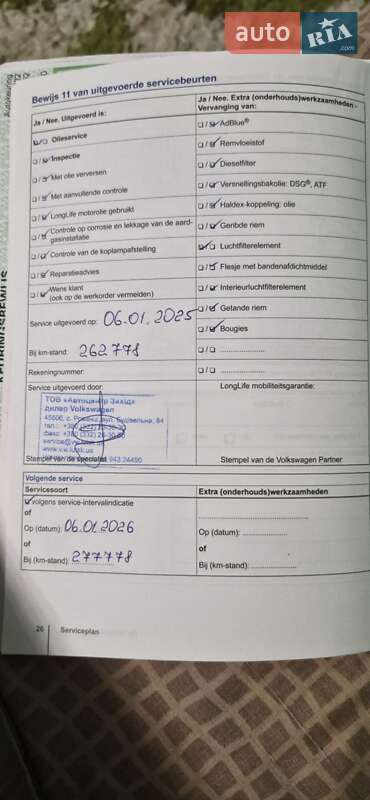 auto RIA
.com
Autokeuring
KEURINGSBEWIJS
Bewijs 11 van uitgevoerde servicebeurten
Ja / Nee. Uitgevoerd is:
Olieservice
Inspectie
Met olie verversen
Met aanvullende controle
LongLife motorolie gebruikt
Controle op corrosie en lekkage van de aard-
gasinstallatie
Controle van de koplampafstelling
Reparatieadvies
Wens klant
(ook op de werkorder vermelden)
Service uitgevoerd op: 06.01.2025
Bij km-stand: 262778
Rekeningnummer:
Ja / Nee. Extra (onderhouds)werkzaamheden -
Vervanging van:
AdBlue®
Remvloeistof
Dieselfilter
Versnellingsbakolie: DSG®, ATF
Haldex-koppeling: olie
Geribde riem
Luchtfilterelement
Flesje met bandenafdichtmiddel
Interieurluchtfilterelement
Getande riem
Bougies
Service uitgevoerd door:
ТОВ «Автоцентр Захід»
дилер Volkswagen
45606, с. Рованці, вул. Будівельна, 84
тел.: +380 (332)
факс: +380 (332)
Stempel van de specialist
943 24490
LongLife mobiliteitsgarantie:
Stempel van de Volkswagen Partner
Volgende service
Servicesoort
volgens service-intervalindicatie
of
Op (datum): 06.01.2026
of
Bij (km-stand): 277778
Extra (onderhouds)werkzaamheden
Op (datum):
of
Bij (km-stand):
26 Serviceplan